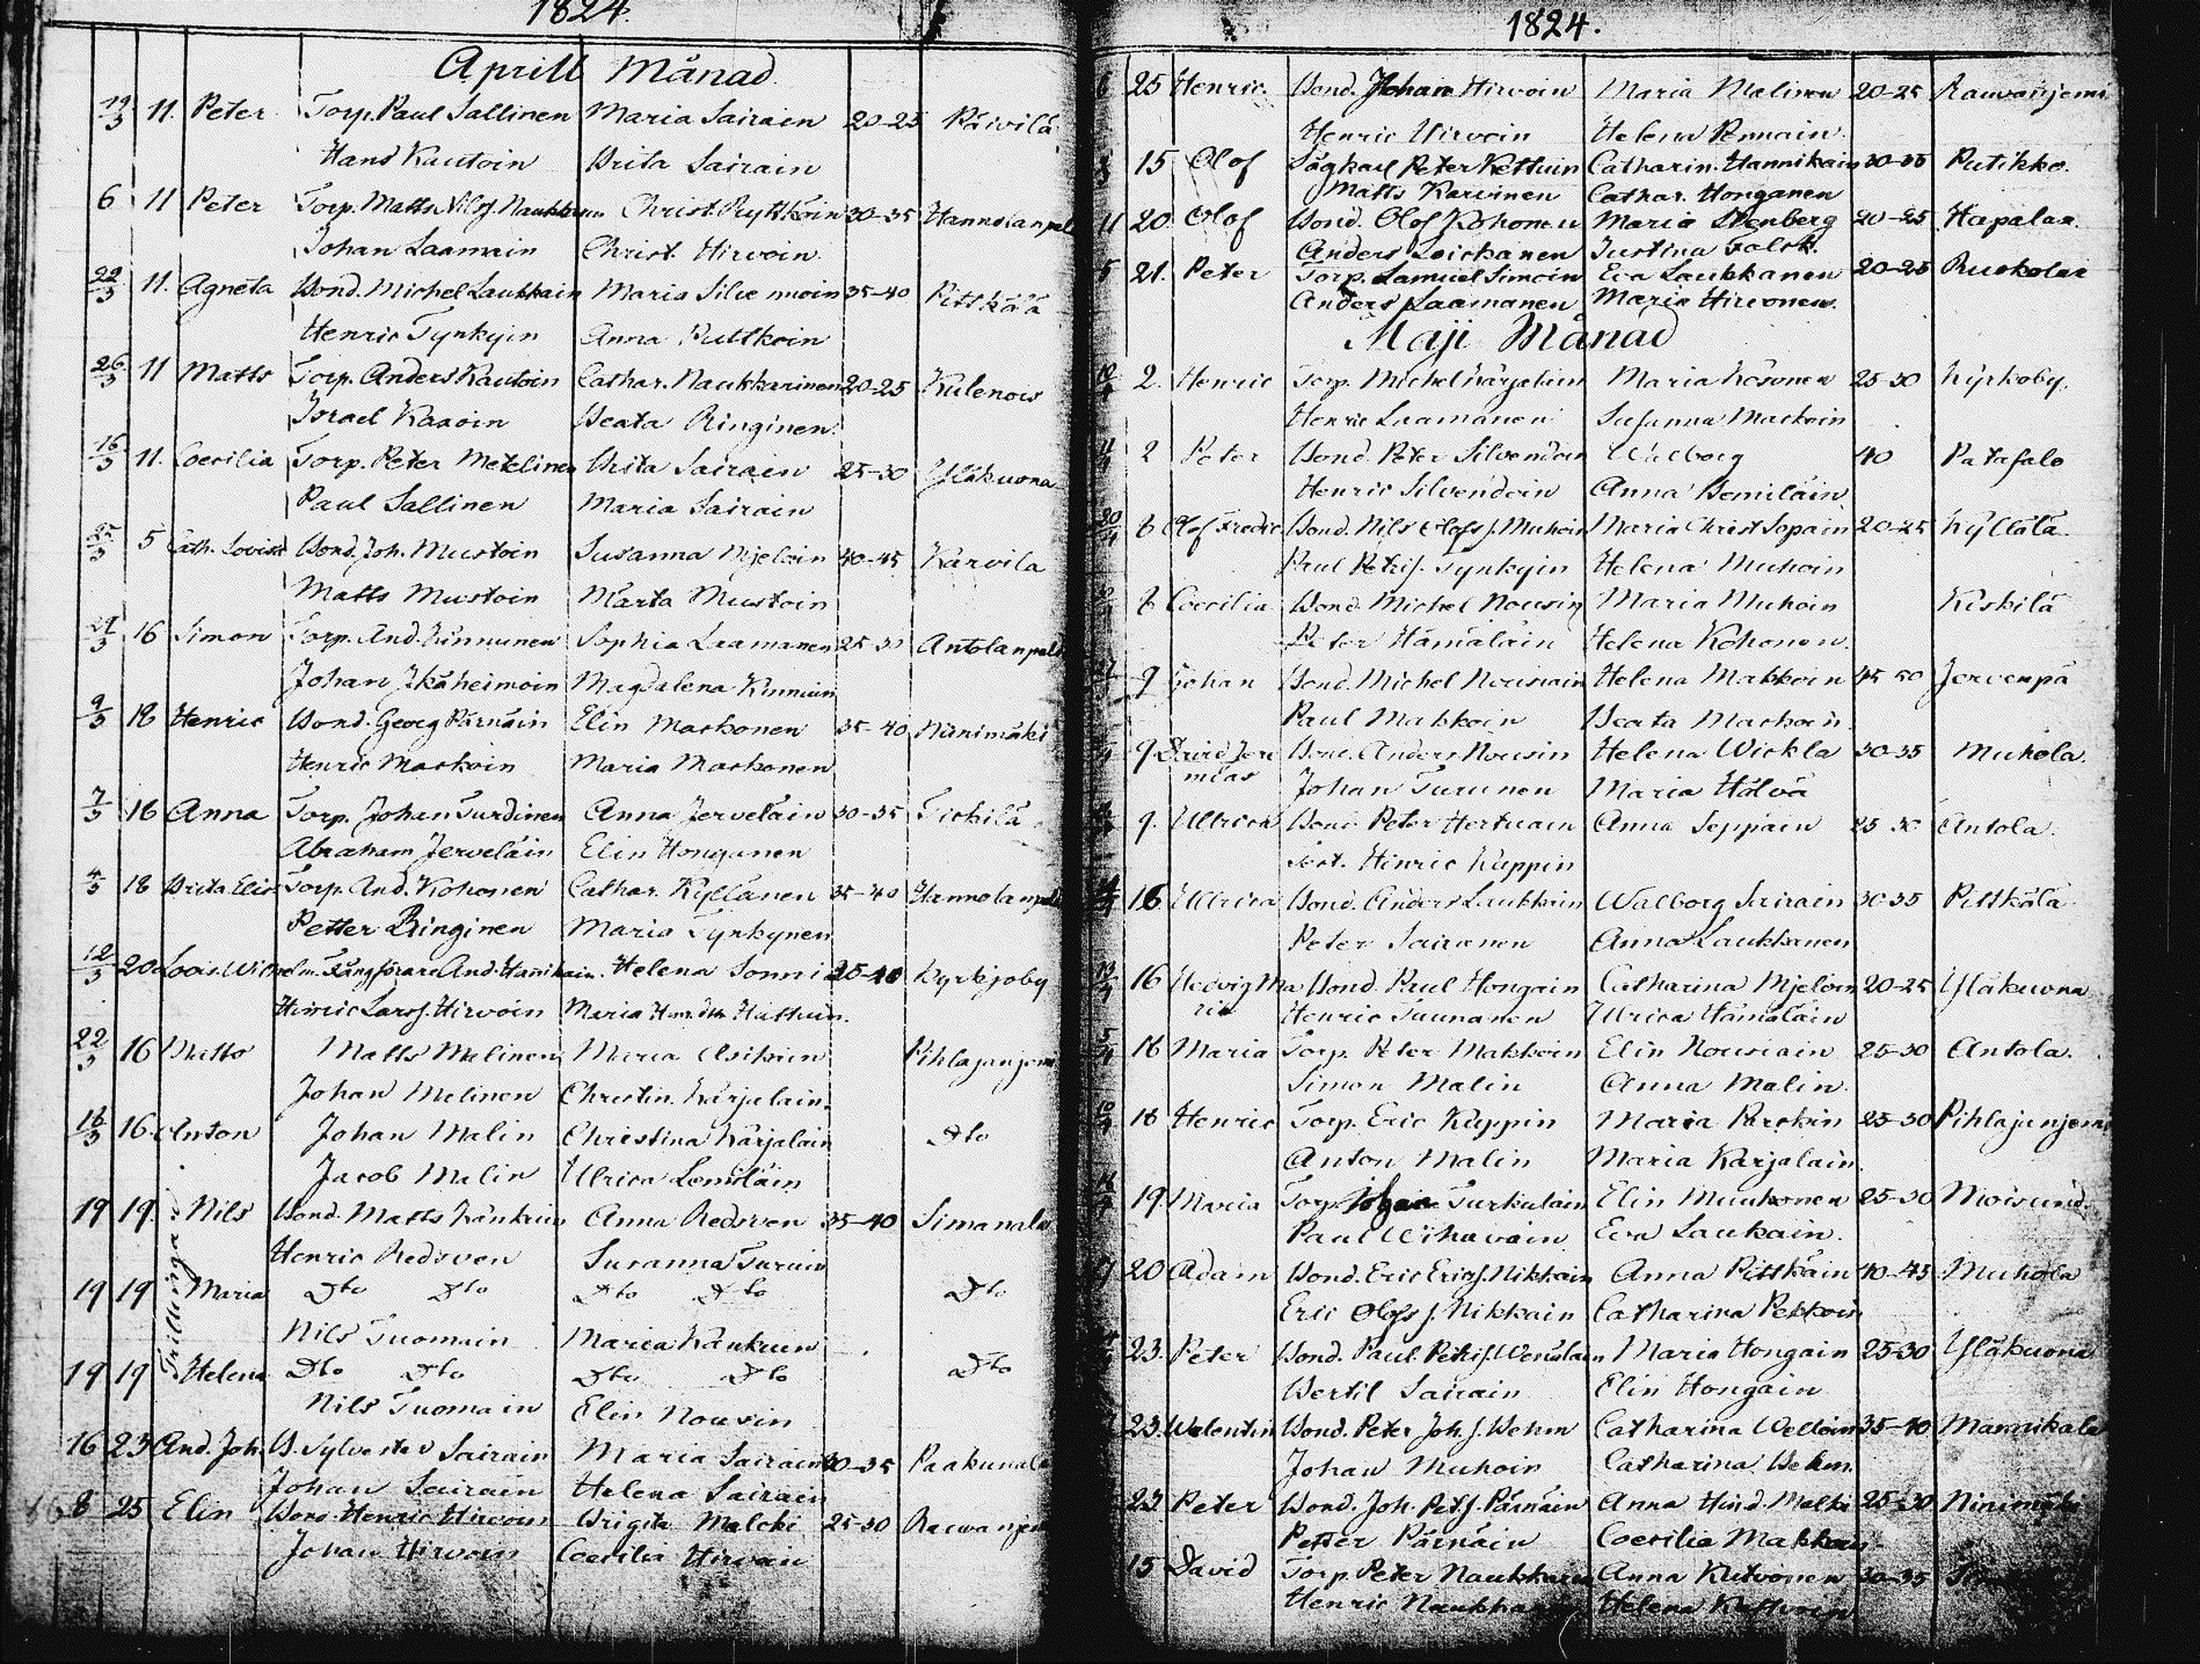 1824.
Aprill Månad
19/3 11. Peter Torp. Paul Sallinen Maria Sairain 20-25 Päivilä
Hans Kautoin Brita Sairain
6 11 Peter Torp. Matts Nilsf. Naukkarinen Christ. Pyttköin 30-35 Hannolanpelt
Johan Laamain Christ. Hirvoin
22/3 11. Agneta Bond. Michel Laukkain Maria Silvennoin 35-40 Pittkälä
Henric Tynkyin Anna Puttkoin
26/3 11 Matts Torp. Anders Kautoin Cathar. Naukkarinen 20-25 Kulenois
Israel Kaxoin Beata Ringinen.
16/3 11. Coecilia Torp. Peter Metelinen Brita Sairain 25-30 Yläkuona
Paul Sallinen Maria Sairain
25/3 5 Cath. Lovisa Bond. Joh. Mustoin Susanna Mjeloin 40-45 Karvila
Matts Mustoin Märta Mustoin
21/3 16 Simon Torp. And. Kinnunen Sophia Laamanen 25-30 Antolanpelt
Johan Ikäheimoin Magdalena Kinnuin
9/3 18 Henric Bond. Georg Pärnäin Elin Maskonen 35-40 Niinimäki
Henric Maskoin Maria Maskonen
7/3 16 Anna Torp. Johan Turdinen Anna Jerveläin 30-35 Tiokilä
Abraham Jerveläin Elin Honganen
4/3 18 Brita Elis Torp. And. Kohonen Cathar. Kyllänen 35-40 Hannolanpelt
Petter Ringinen Maria Tynkynen
12/3 20 Lovis. Wilhelm. Fångförare And. Hannikain. Helena Sonni 35-40 Kyrkjoby
Henric Larsf. Hirvoin Maria Hattuin.
22/3 16 Matts Matts Malinen Maria Asikain Pihlajanjemi
Johan Malinen Christin. Kärjalain.
16/3 16. Anton Johan Malin Christina Kärjalain Dto
Jacob Malin Ulrica Lemiläin
Trillingar
19 19. Nils Bond. Matts Känkuin Anna Redsven 35-40 Simanala
Henric Redsven Susanna Turuin
19 19 Maria Dto Dto Dto Dto Dto
Nils Tuomain Maria Känkuin
19 19 Helena Dto Dto Dto Dto Dto
Nils Tuomain Elin Nousin
16 23 And. Joh. B. Sylvester Sairain Maria Sairain 30-35 Paakunala
Johan Sairain Helena Sairain
8 25 Elin Bond. Henric Hirvoin Brigita Malcki 25-30 Rauvanjemi
Johan Hirvoin Coecilia Hirvoin
1824.
6 25 Henric. Bond. Johan Hirvoin Maria Malinen 20-25 Rauvanjemi
Henric Hirvoin Helena Pennain.
15 Olof Sågkarl Peter Kettuin Catharin. Hannikain 30-35 Putikko.
Matts Karvinen Cathar. Honganen
11 20. Olof Bond. Olof Kohonen Maria Stenberg 20-25 Hapalax.
Anders Loickanen Justina Falck.
5 21. Peter Torp. Samuel Simoin Eva Laukkanen 20-25 Ruokolax
Anders Laamanen Maria Hirvonen.
Maji Månad
2. Henric Torp. Michel Kärjalain Maria Kosonen 25-30 Kyrkoby.
Henric Laamanen Susanna Maskoin
11/4 2 Peter Bond. Peter Silvendoin Walborg 40 Patasalo
Henric Silvendoin Anna Demiläin
20/4 6 Olof Fredric Bond. Nils Olofs f. Muhoin Maria Christ Sopain 20-25 Kyllälä.
Paul Petrif. Tynkyin Helena Muhoin
6 Coecilia Bond. Michel Nousin Maria Muhoin Kiskilä
Peter Hämäläin Helena Kohonen.
9 Johan Bond. Michel Nousiain Helena Makkoin 45 50 Jervenpä
Paul Makkoin Beata Maskoin.
9 David Jeremias Bond. Anders Nousin Helena Wickla 30-35 Muhola.
Johan Turunen Maria Hälvä
9. Ulrica Bond. Peter Hertuain Anna Seppäin 25 30 Antola.
Hinric Kuppin
16 Ulrica Bond. Anders Laukkain Walborg Sairain 30-35 Pittkälä.
Peter Sairanen Anna Laukkanen
13/4 16 Hedvig Maria Bond. Paul Hongain Catharina Mjeloin 20-25 Yläkuona
Henric Tuunanen Ulrica Hämäläin
5/4 16 Maria Torp. Peter Makkoin Elin Nousiain 25-30 Antola.
Simon Malin Anna Malin.
10/4 16 Henric Torp. Eric Kuppin Maria Parckin 25-30 Pihlajanjemi
Anton Malin Maria Karjalain.
19. Maria Torp. Johan Turkulain Elin Muukonen 25-30 Moisund.
Paul Wihavain Eva Laukain.
20 Adam Bond. Eric Ericsf. Nikkain Anna Pittkäin 40-45 Muhola
Eric Olofs f. Nikkain Catharina Pekkoin
23. Peter Bond. Paul Petrif. Wenäläin Maria Hongain 25-30 Yläkuona
Bertil Sairain Elin Hongain
23. Walentin Bond. Peter Joh. f. Behm Catharina Welloin 35-40 Mannikala
Johan Muhoin Catharina Behm.
23 Peter Bond. Joh. Pet. f. Pärnäin Anna Hind. Malki 25-30 Ninimäki
Petter Pärnäin Coecilia Makkoin.
15 David Torp. Peter Naukkarin Anna Kutvonen 30-35
Henric Naukkarin Helena Kuttvoin